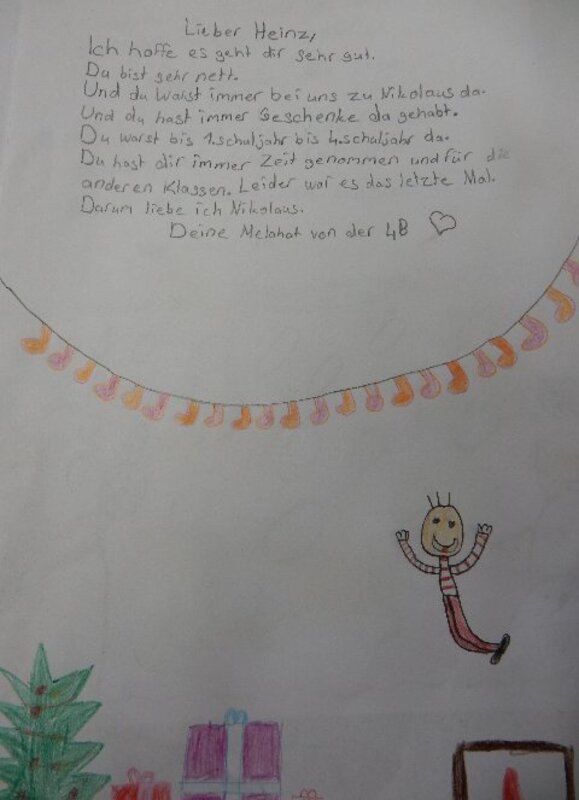 Lieber Heinz,
Ich hoffe es geht dir sehr gut.
Du bist sehr nett.
Und du warst immer bei uns zu Nikolaus da.
Und du hast immer Geschenke da gehabt.
Du warst bis 1.schuljahr bis 4.schuljahr da.
Du hast dir immer Zeit genommen und für die
anderen Klassen. Leider war es das letzte Mal.
Darum liebe ich Nikolaus.
Deine Melahat von der 4B